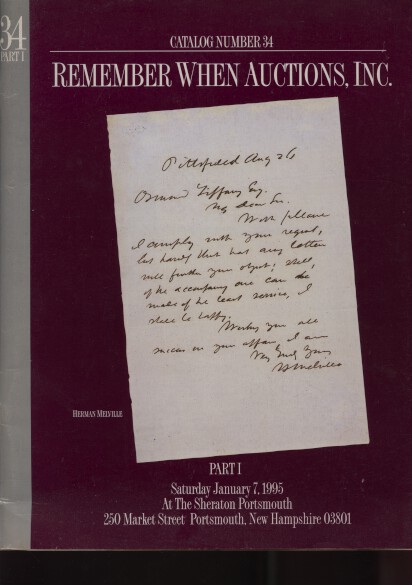 34
PART I
CATALOG NUMBER 34
REMEMBER WHEN AUCTIONS, INC.
Pittsfield Aug 26
Osmond Tiffany Esq.
My dear Sir.
With pleasure
I comply with your request,
but hardly think that any letter
will further your object; still,
if the accompanying one can be
made of the least service, I
shall be happy.
Wishing you all
success in your affair, I am
Very Truly Yours
H Melville
HERMAN MELVILLE
PART I
Saturday January 7, 1995
At The Sheraton Portsmouth
250 Market Street Portsmouth, New Hampshire 03801